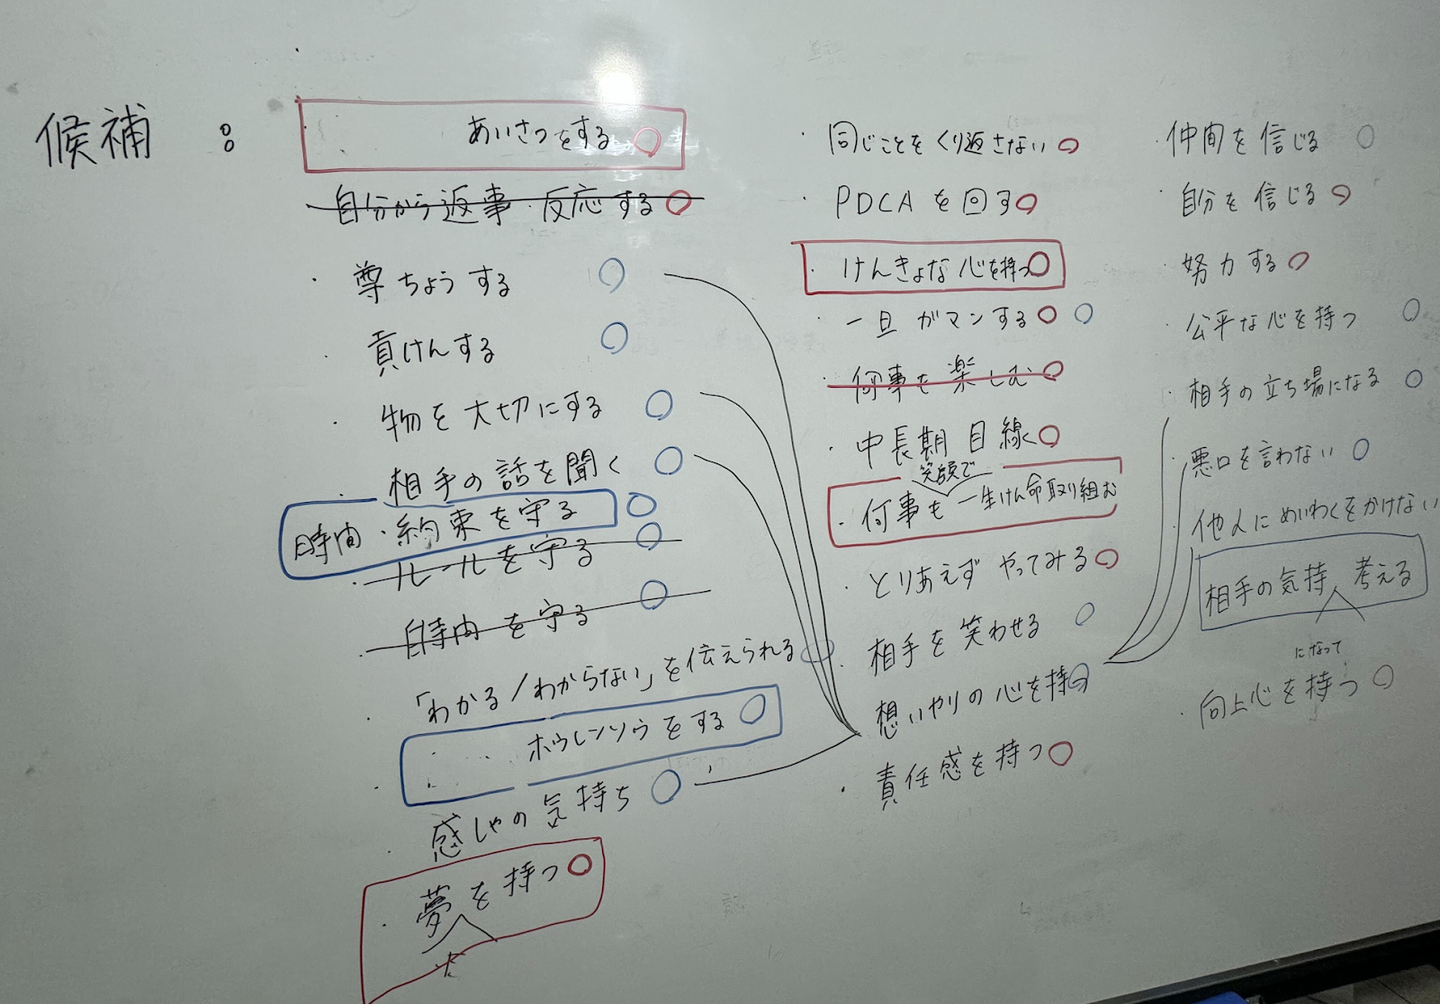 候補 :
あいさつをする
自分から返事・反応する
・尊ちょうする
・貢けんする
物を大切にする
・相手の話を聞く
時間・約束を守る
・ルールを守る
・時間を守る
・「わかる/わからない」を伝えられる
・ホウレンソウをする
・感しゃの気持ち
・夢を持つ
・同じことをくり返さない
・PDCAを回す
・けんきょな心を持つ
・一旦ガマンする
・何事を楽しむ
・中長期目線
笑顔で
・何事も一生けん命取り組む
・とりあえずやってみる
・相手を笑わせる
・想いやりの心を持つ
・責任感を持つ
・仲間を信じる
・自分を信じる
・努力する
・公平な心を持つ
・相手の立ち場になる
・悪口を言わない
・他人にめいわくをかけない
相手の気持 考える
になって
・向上心を持つ